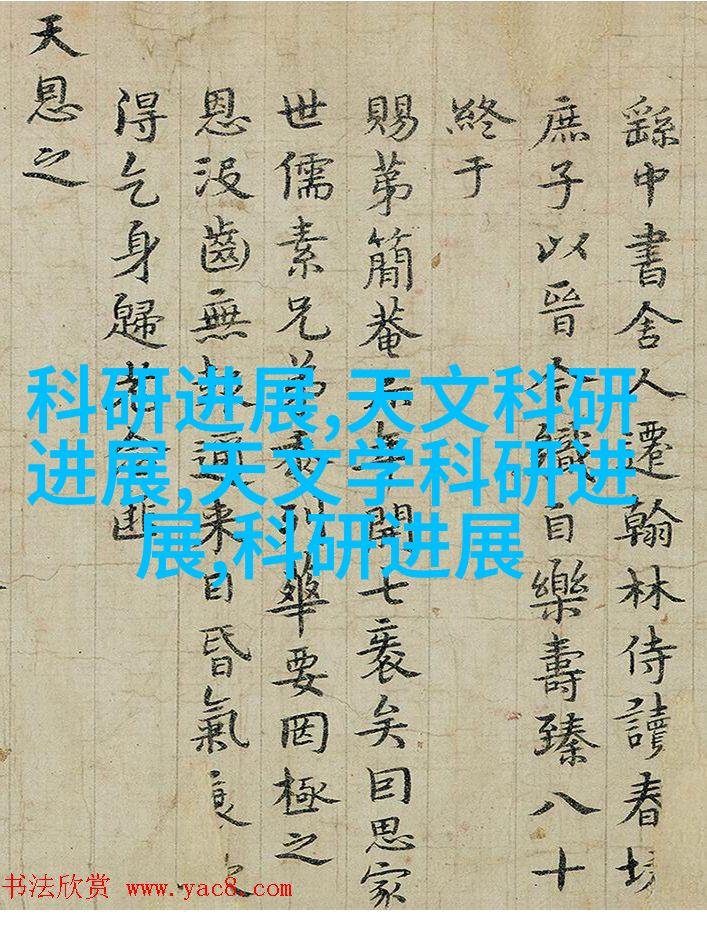 繇中書舍人遷翰林侍讀春坊
庶子以晉令織自樂壽臻八十
終于
賜第簡菴
開七袠矣囙思家
世儒素兄弟
華要罔極之
恩没齒無
来日昏氣
得乞身歸
天恩之
科研进展,天文科研
进展,天文学科研进
展,科研进展
书法欣赏 www.yac8.com